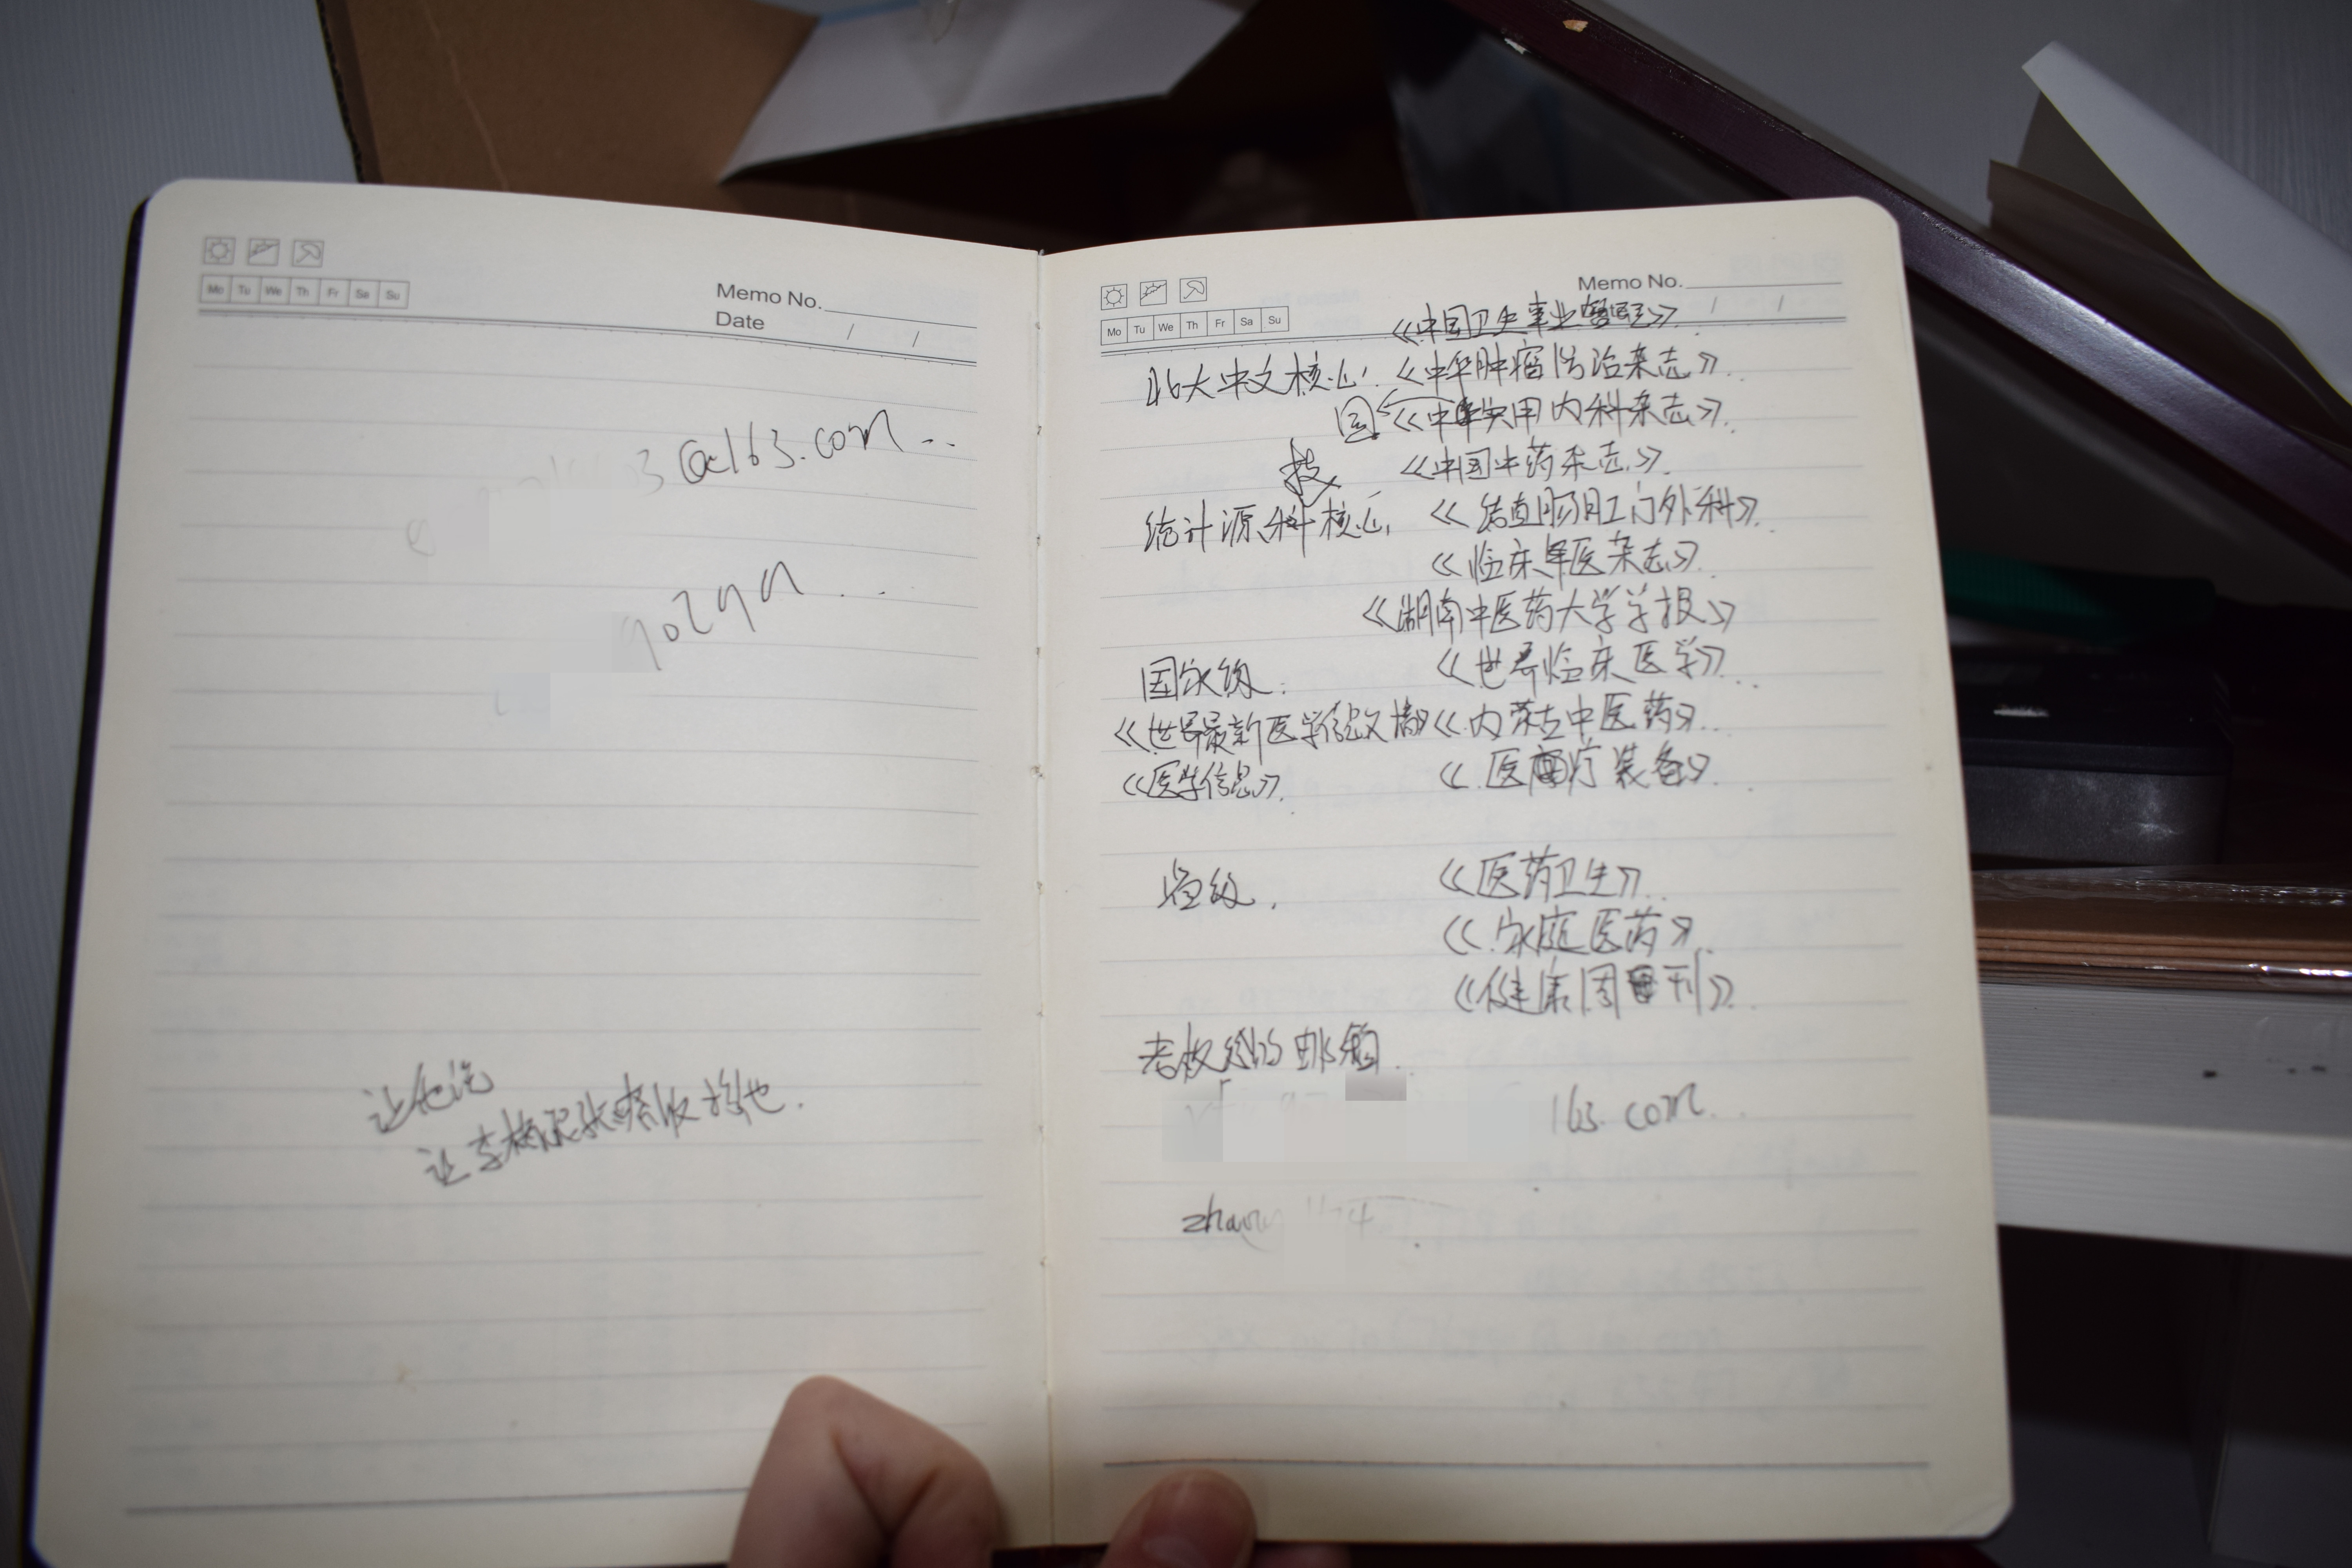 Mo Tu We Th Fr Sa Su
Memo No.
Date / /
3@163.com..
让他说
Memo No.
Mo Tu We Th Fr Sa Su
/ /
《中国卫生事业管理》
北大中文核心. 《中华肿瘤防治杂志》.
国 《中华实用内科杂志》.
技
《中国中药杂志》.
统计源科核心 《结直肠肛门外科》.
《临床军医杂志》.
《湖南中医药大学学报》
国家级: 《世界临床医学》..
《世界最新医学信息文摘》《内蒙古中医药》..
《医学信息》. 《医疗装备》.
省级. 《医药卫生》.
《家庭医药》.
《健康周刊》.
老板给的邮箱.
163.com..